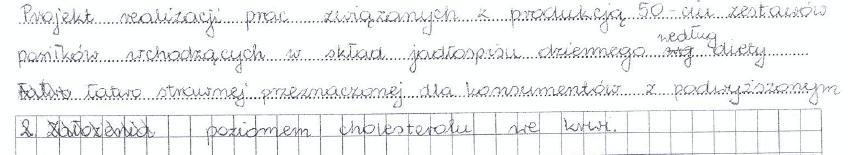 Projekt realizacji prac związanych z produkcją 50-ciu zestawów
posiłków wchodzących w skład jadłospisu dziennego według diety
łatwo strawnej przeznaczonej dla konsumentów z podwyższonym
2. Założenia poziomem cholesterolu we krwi.